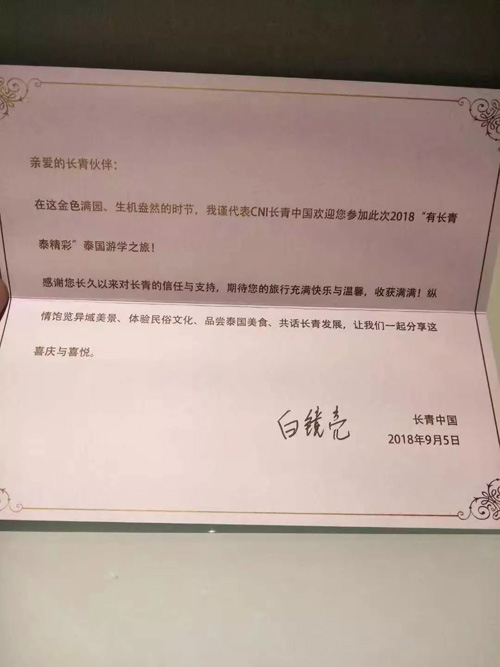 亲爱的长青伙伴：
在这金色满园、生机盎然的时节，我谨代表CNI长青中国欢迎您参加此次2018“有长青
泰精彩”泰国游学之旅！
感谢您长久以来对长青的信任与支持，期待您的旅行充满快乐与温馨，收获满满！纵
情饱览异域美景、体验民俗文化、品尝泰国美食、共话长青发展，让我们一起分享这
喜庆与喜悦。
白镜亮
长青中国
2018年9月5日